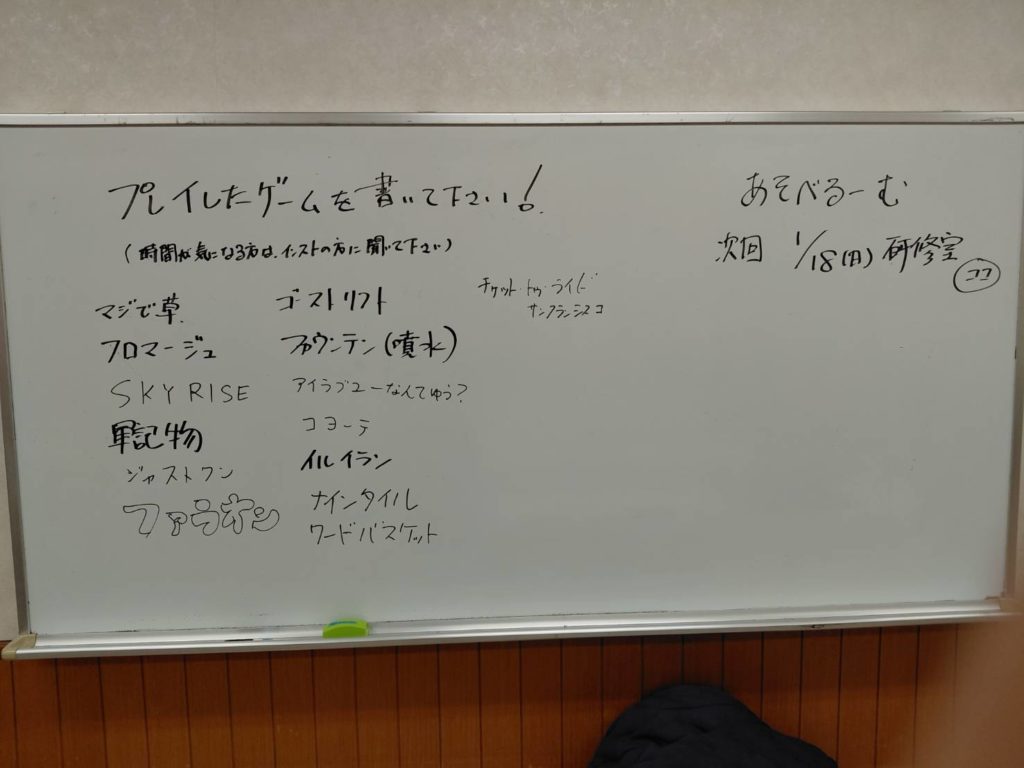 プレイしたゲームを書いて下さい!
(時間が気になる方は、インストの方に聞いて下さい)
マジで草
フロマージュ
SKY RISE
軍記物
ジャストワン
ファラオン
ゴーストリフト
ファウンテン(噴水)
アイラブユーなんてゆう?
コヨーテ
イルイラン
ナインタイル
ワードバスケット
チケット・トゥ・ライド
サンフランシスコ
あそべるーむ
次回 1/18(日) 研修室
ココ